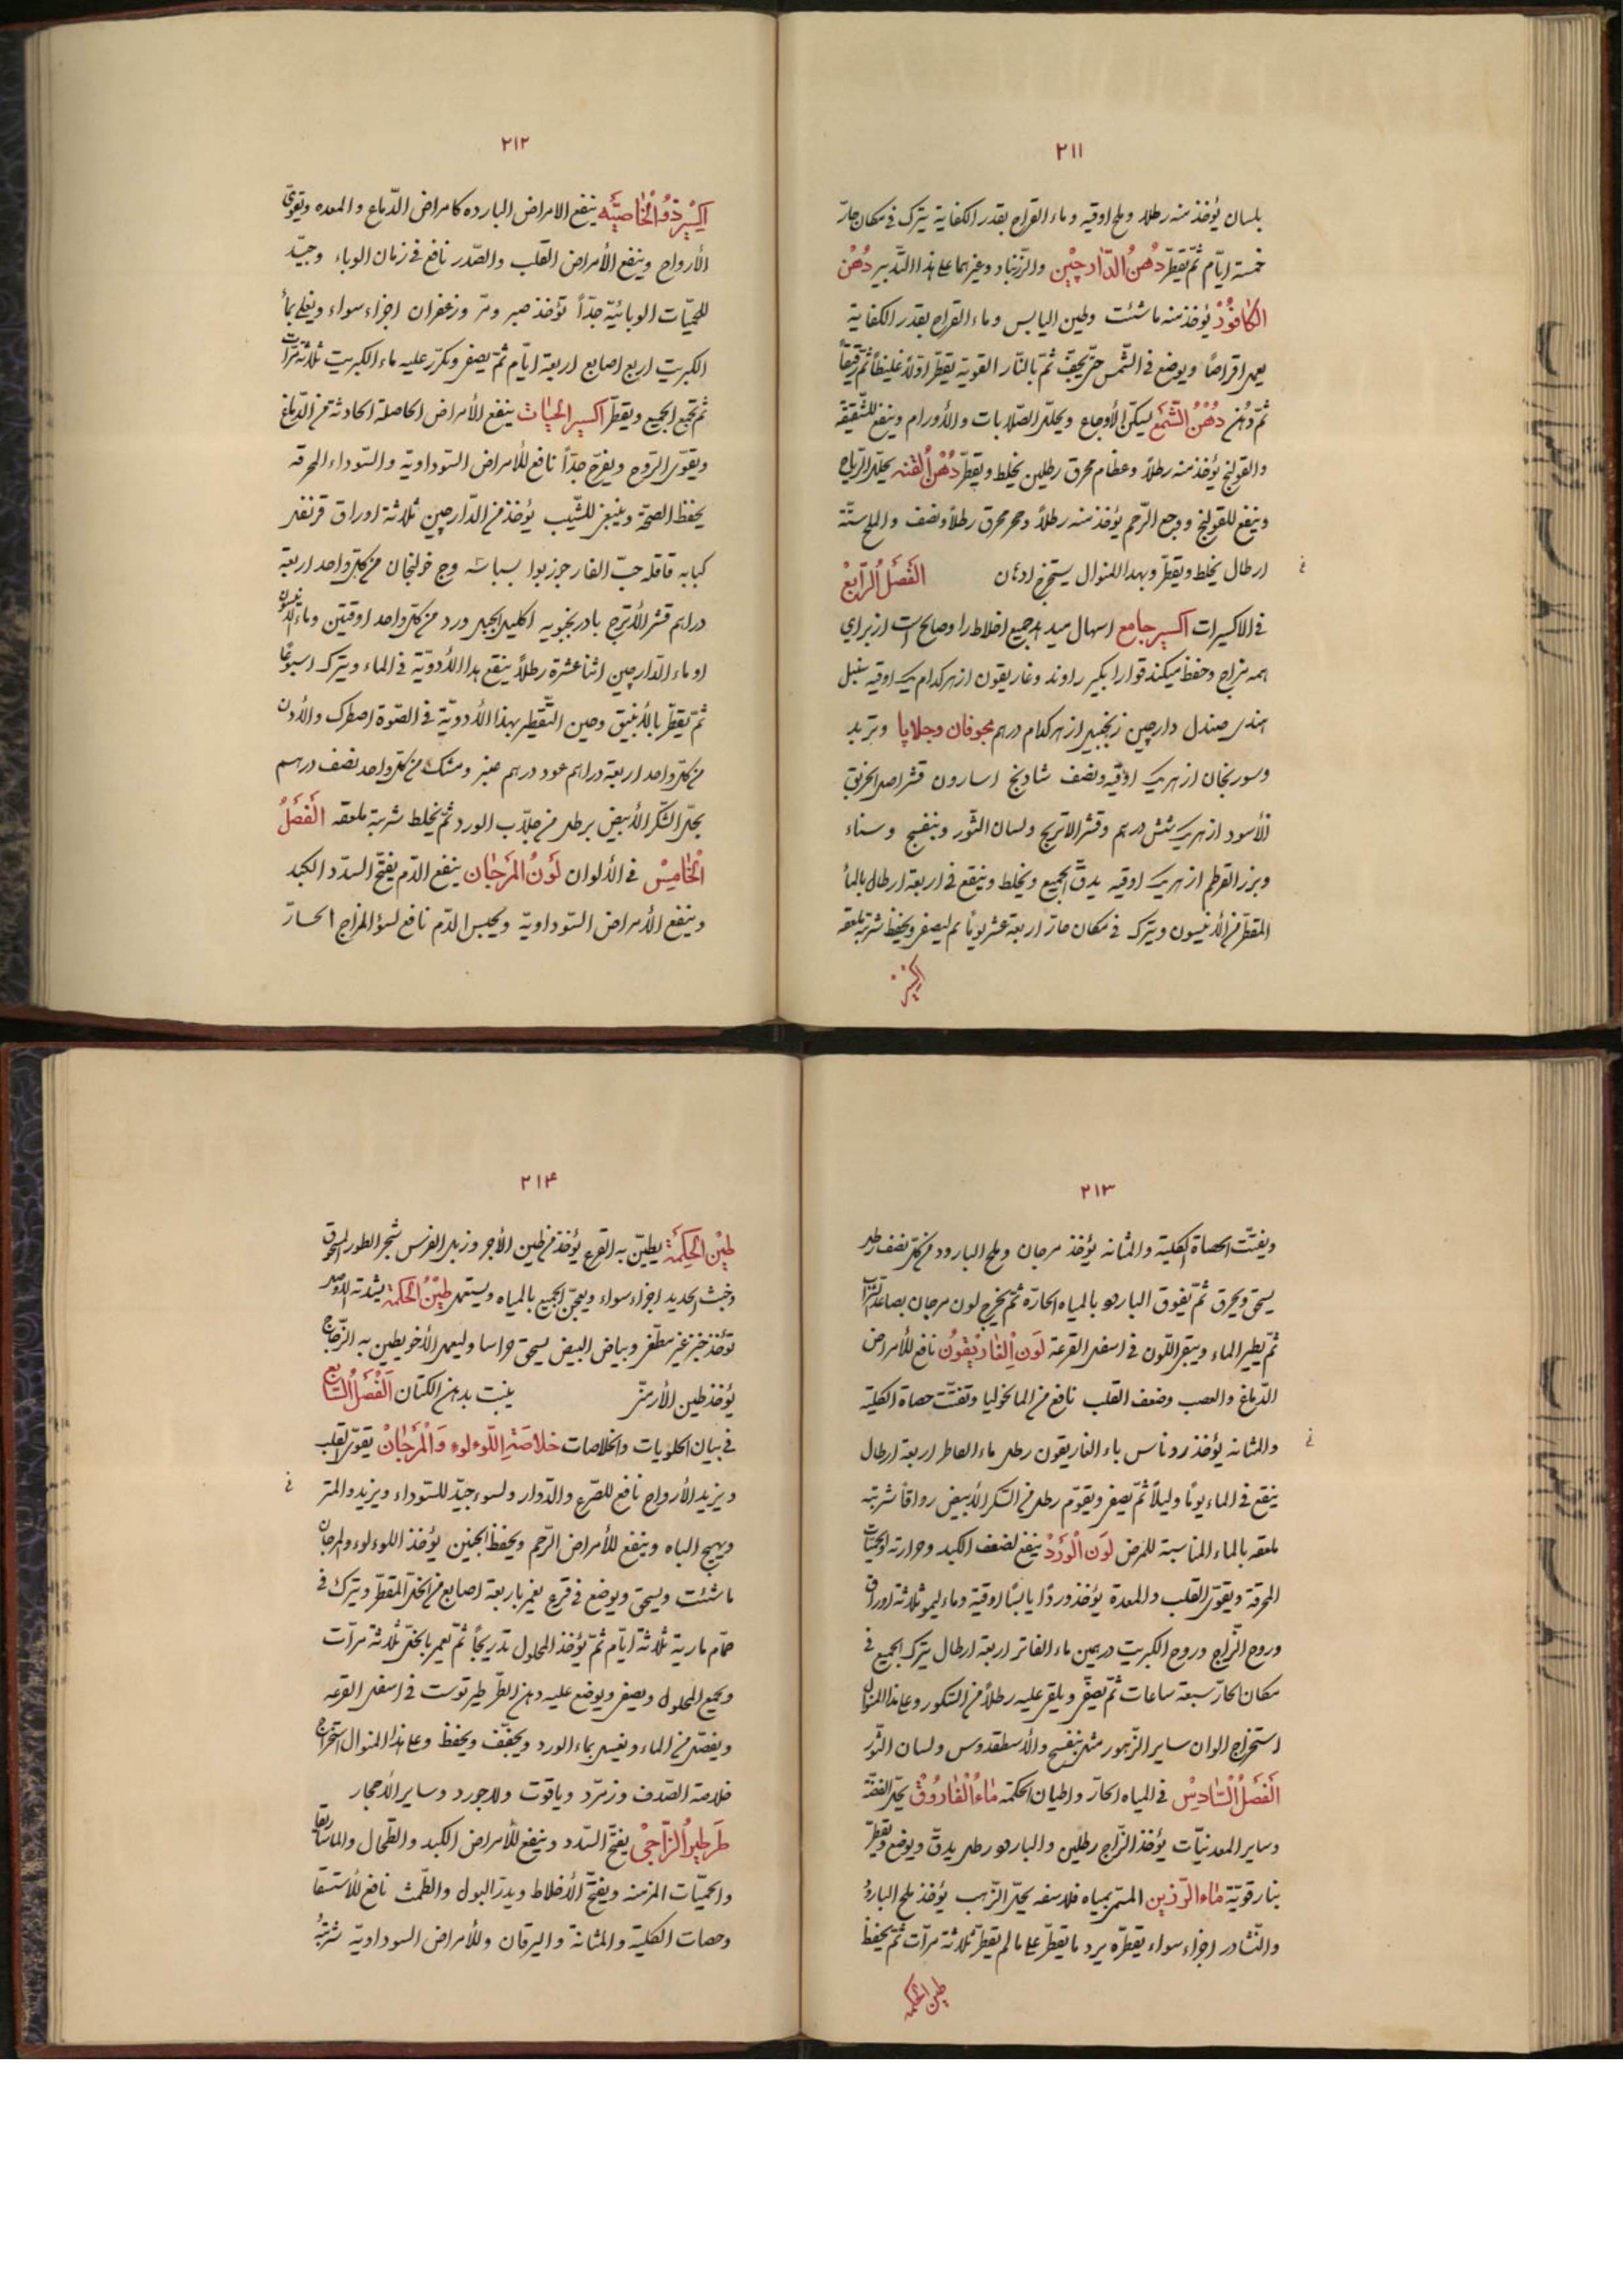 ٢١١
بلسان يؤخذ منه رطلا وملح اوقيه وماء القراح بقدر الكفاية يترك فى مكان حارّ
خمسة ايّام ثمّ يقطّر دُهنُ الدّارچيْن والزرنباد وغيرهما على هذا التّدبير دُهْن
الكافُور يؤخذ منه ما شئت وطين اليابس وماء القراح بقدر الكفاية
يعمل اقراصًا ويوضع فى الشّمس حتّى يجفّ ثمّ بالنّار القوية يقطّر اوّلاً غليظاً ثمّ رقيقاً
ثمّ دُهن دُهْنُ الشَّمَع يسكّن الأوجاع ويحلّل الصّلابات والأورام وينفع للشّقيقة
والقولنج يؤخذ منه رطلاً وعظام محرق رطلين يخلط ويقطّر دُهْن القنه يحلّل الرّياح
وينفع للقولنج ووجع الرّحم يؤخذ منه رطلاً وحجر محرق رطلاً ونصف والملح ستّة
ارطال يخلط ويقطّر وبهذا المنوال يستخرج ادهان الفَصَلُ الرَّابعْ
فى الاكسيرات اكسير جامع اسهال ميدهد جميع اخلاط را وصالح است از براى
همه مزاج وحفظ ميكند قوارا بگير راوند وغاريقون از هر كدام يك اوقيه سنبل
هندى صندل دارچين زنجبيل از هر كدام درهم مجوقان وجلاپا وتربد
وسورنجان از هر يك اوقيه ونصف شاذنج اسارون قشر اصل الخربق
الأسود از هر يك شش درهم وقشر الاترج ولسان الثّور وبنفسج وسناء
وبزر القرطم از هر يك اوقيه يدقّ الجميع ويخلط وينقع فى اربعة ارطال بالماء
المقطّر من الأنيسون ويترك فى مكان حارّ اربعة عشر يوماً ثم يصفى ويحفظ شربته ملعقه
اكسير
٢١٢
اكسير ذُو الخاصيَّه ينفع الامراض البارده كامراض الدّماغ والمعده ويقوّى
الأرواح وينفع الأمراض القلب والصّدر نافع فى زمان الوباء وجيّد
للحميّات الوبائيّة جدّاً تؤخذ صبر ومرّ وزعفران اجزاء سواء ويغلى بماء
الكبريت اربع اصابع اربعة ايّام ثمّ يصفى ويكرّر عليه ماء الكبريت ثلاثة مرّات
ثمّ تجمع الجميع ويقطّر اكسير الحيات ينفع الأمراض الحاصلة الحادثة من الدّماغ
ويقوّى الرّوح ويفرّح جدّاً نافع للأمراض السّوداويّة والسّوداء المحرقه
يحفظ الصحّة وينبغى للشّيب يؤخذ من الدّارچين ثلاثة اوراق قرنفل
كبابه قاقله حبّ الغار جوز بوا بسباسه وج خولنجان من كلّ واحد اربعة
دراهم قشر الأترج بادرنجبويه اكليل الجبل ورد من كلّ واحد اوقيتين وماء الانيسون
او ماء الدّارچين اثنا عشرة رطلاً ينقع هذا الأدويّة فى الماء ويترك اسبوعًا
ثمّ يقطّر بالأنبيق وحين التّقطير بهذا الأدويّة فى الصّوة اصطرك والأدن
من كلّ واحد اربعة دراهم عود درهم عنبر ومشك من كلّ واحد نصف درهم
يحلّ السّكر الأبيض برطل من جلاّب الورد ثمّ يخلط شربته ملعقه الفَصَلُ
الخامِسْ فى الألوان لَونُ المَرجَان ينفع الدّم يفتّح السّدّد الكبد
وينفع الأمراض السّوداويّة ويحبس الدّم نافع لسوء المزاج الحارّ
٢١٣
ويفتّت الحصاة الكلية والمثانه يؤخذ مرجان وملح البارود من كلّ نصف رطل
يسحق ويحرق ثمّ يفوق البارود بالمياه الحارّة ثمّ يخرج لون مرجان بصاعد الشراب
ثمّ يطير الماء ويبقى اللّون فى اسفل القرعة لَون الغاريْقُونْ نافع للأمراض
الدّماغ والعصب وضعف القلب نافع من الماليخوليا وتفتّت حصاة الكلية
والمثانه يؤخذ روناس باء الغاريقون رطل ماء الماطر اربعة ارطال
ينقع فى الماء يومًا وليلاً ثمّ يصفى ويقوّم رطل من السّكر الأبيض رواقاً شربته
ملعقه بالماء المناسبة للمرض لَون الوَرَدْ ينفع لضعف الكبد وحرارته والحميّات
المحرقة ويقوّى القلب والمعدة يؤخذ وردًا يابسًا اوقية وماء ليمو ثلاثة اوراق
وروح الزّاج وروح الكبريت درهمين ماء الفاتر اربعة ارطال يترك الجميع فى
مكان الحارّ سبعة ساعات ثمّ يصفّى ويلقى عليه رطلاً من السّكر وعلى هذا المنوال
استخراج الوان ساير الزّهور مثل بنفسج والأسطقدوس ولسان الثّور
الفَصَلُ السَّادِسْ فى المياه الحارّ واطيان الحكمة مَاءُ الْفَاروُقْ يحلّ الفضّه
وساير المعدنيّات يؤخذ الزّاج رطلين والبارود رطل يدقّ ويوضع ويقطّر
بنار قويّة مَاء الرّزين المسمّى بمياه فلاسفه يحلّ الذّهب يؤخذ ملح البارود
والنّشادر اجزاء سواء يقطّره يرد ما يقطّر على ما لم يقطّر ثلاثة مرّات ثمّ يحفظ
طين الحكمه
٢١۴
طيْن الحِكَمَة يطيّن به القرع يؤخذ من طين الأجر وزبل الفرس شجر الطور المسحوق
وخبث الحديد اجزاء سواء ويعجّن الجميع بالمياه ويستعمل طيْنُ الحكمَة يشدّته الوصل
تؤخذ خبز غير مطّفى وبياض البيض يسحق وليعمل الأخر يطين به الزّجاج
يؤخذ طين الأرمنّى ينبت بدهن الكتان الفَصَلُ السَّابع
فى بيان الحلويات والخلاصات خلاصَة اللّوءلوء وَالْمَرجَانْ يقوّى القلب
ويزيد الأرواح نافع للصّرع والدّوار ولسوء جيّد للسّوداء ويزيد المنى
ويهيج الباه وينفع للأمراض الرّحم ويحفظ الجنين يؤخذ اللوءلوء والمرجان
ما شئت ويسحق ويوضع فى قرع يغمر باربعة اصابع من الخلّ المقطّر ويترك فى
حمّام مارية ثلاثة ايّام ثمّ يؤخذ المحلول تدريجاً ثمّ يغمر بالخلّ ثلاثة مرّات
ويجمع المحلول ويصفى ويوضع عليه دهن الطّرطير توست فى اسفل القرعه
ويفصّل من الماء ويغسل بماء الورد ويجفّف ويحفظ وعلى هذا المنوال استخراج
خلاصة الصّدف وزمرّد وياقوت ولاجورد وساير الأحجار
طَرطيُر الزّاجىْ يفتّح السّدد وينفع للأمراض الكبد والطّحال والماساريقا
والحميّات المزمنه ويفتّح الأخلاط ويدرّ البول والطّمث نافع للأستسقا
وحصات الكلية والمثانة واليرقان وللأمراض السوداويّة شربتهُ